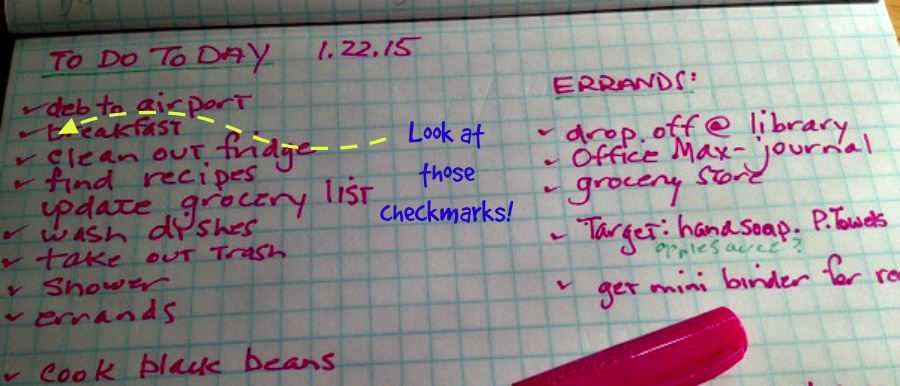 TO DO TODAY 1.22.15
deb to airport
breakfast
clean out fridge
find recipes
update grocery list
wash dishes
take out trash
shower
errands
cook black beans
Look at
those
checkmarks!
ERRANDS:
drop off @ library
Office Max- journal
grocery store
Target: handsoap. P.Towels
applesauce?
get mini binder for